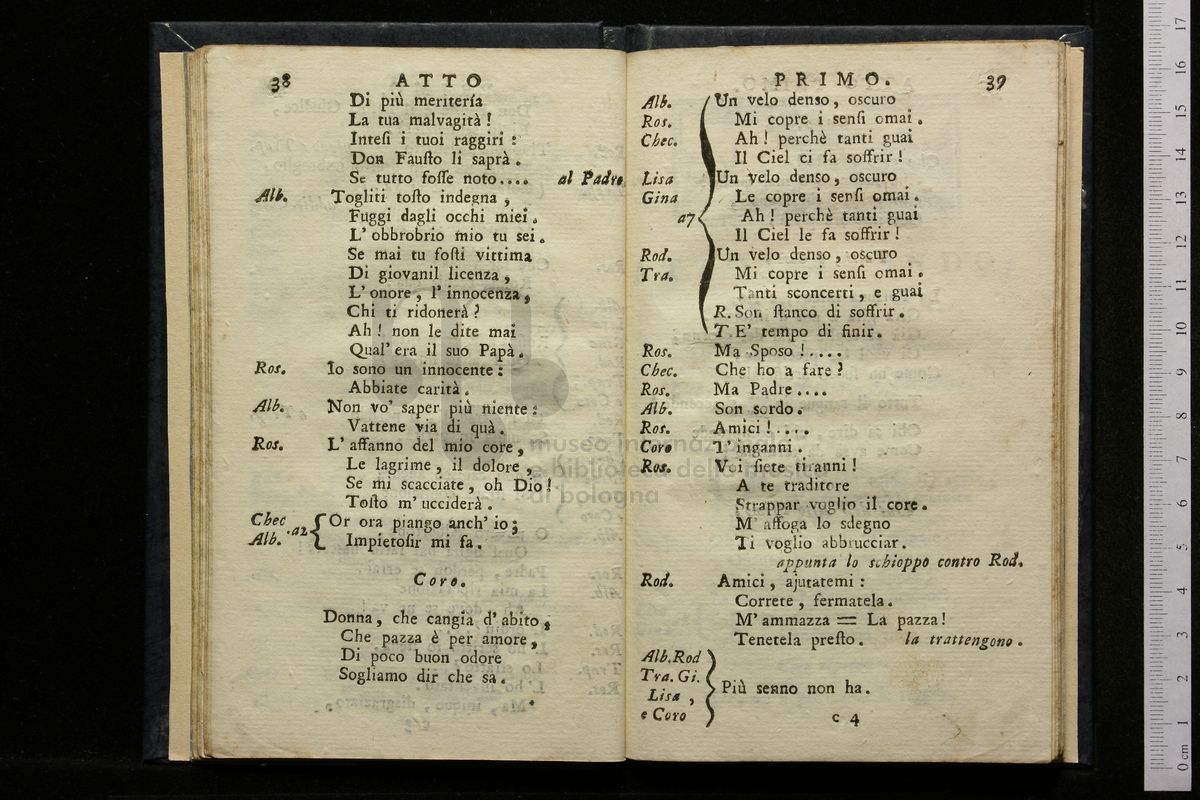 38 ATTO
Di più meritería
La tua malvagità !
Intesi i tuoi raggiri :
Don Fausto li saprà .
Se tutto fosse noto.... al Padre
Alb. Togliti tosto indegna ,
Fuggi dagli occhi miei .
L' obbrobrio mio tu sei .
Se mai tu fosti vittima
Di giovanil licenza ,
L' onore , l' innocenza ,
Chi ti ridonerà ?
Ah ! non le dite mai
Qual' era il suo Papà .
Ros. Io sono un innocente :
Abbiate carità .
Alb. Non vo' saper più niente :
Vattene via di quà .
Ros. L' affanno del mio core ,
Le lagrime , il dolore ,
Se mi scacciate , oh Dio !
Tosto m' ucciderà .
Chec Or ora piango anch' io ;
a2
Alb. Impietosir mi fa .
Coro.
Donna , che cangia d' abito ,
Che pazza è per amore ,
Di poco buon odore
Sogliamo dir che sa .
PRIMO. 39
Alb. Un velo denso , oscuro
Ros. Mi copre i sensi omai .
Chec. Ah ! perchè tanti guai
Il Ciel ci fa soffrir !
Lisa Un velo denso , oscuro
Gina Le copre i sensi omai .
a7 Ah ! perchè tanti guai
Il Ciel le fa soffrir !
Rod. Un velo denso , oscuro
Tra. Mi copre i sensi omai .
Tanti sconcerti , e guai
R. Son stanco di soffrir .
T. E' tempo di finir .
Ros. Ma Sposo !....
Chec. Che ho a fare ?
Ros. Ma Padre....
Alb. Son sordo .
Ros. Amici !....
Coro T' inganni .
Ros. Voi siete tiranni !
A te traditore
Strappar voglio il core .
M' affoga lo sdegno
Ti voglio abbrucciar .
appunta lo schioppo contro Rod.
Rod. Amici , ajutatemi :
Correte , fermatela .
M' ammazza = La pazza !
Tenetela presto . la trattengono .
Alb. Rod
Tra. Gi.
Lisa , Più senno non ha .
e Coro
C 4
museo internazionale
e biblioteca della musica
di bologna
0 cm 1 2 3 4 5 6 7 8 9 10 11 12 13 14 15 16 17